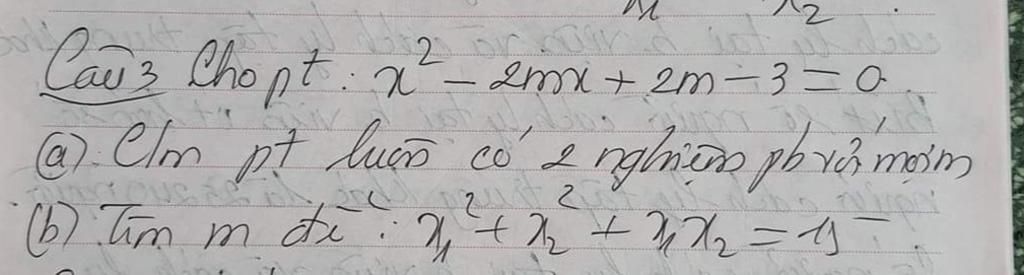 x₂
Câu 3 Cho pt : x² - 2mx + 2m - 3 = 0.
(a). C/m pt luôn có 2 nghiệm pb với mọi m
(b) Tìm m để : x₁² + x₂² + x₁x₂ = 15.